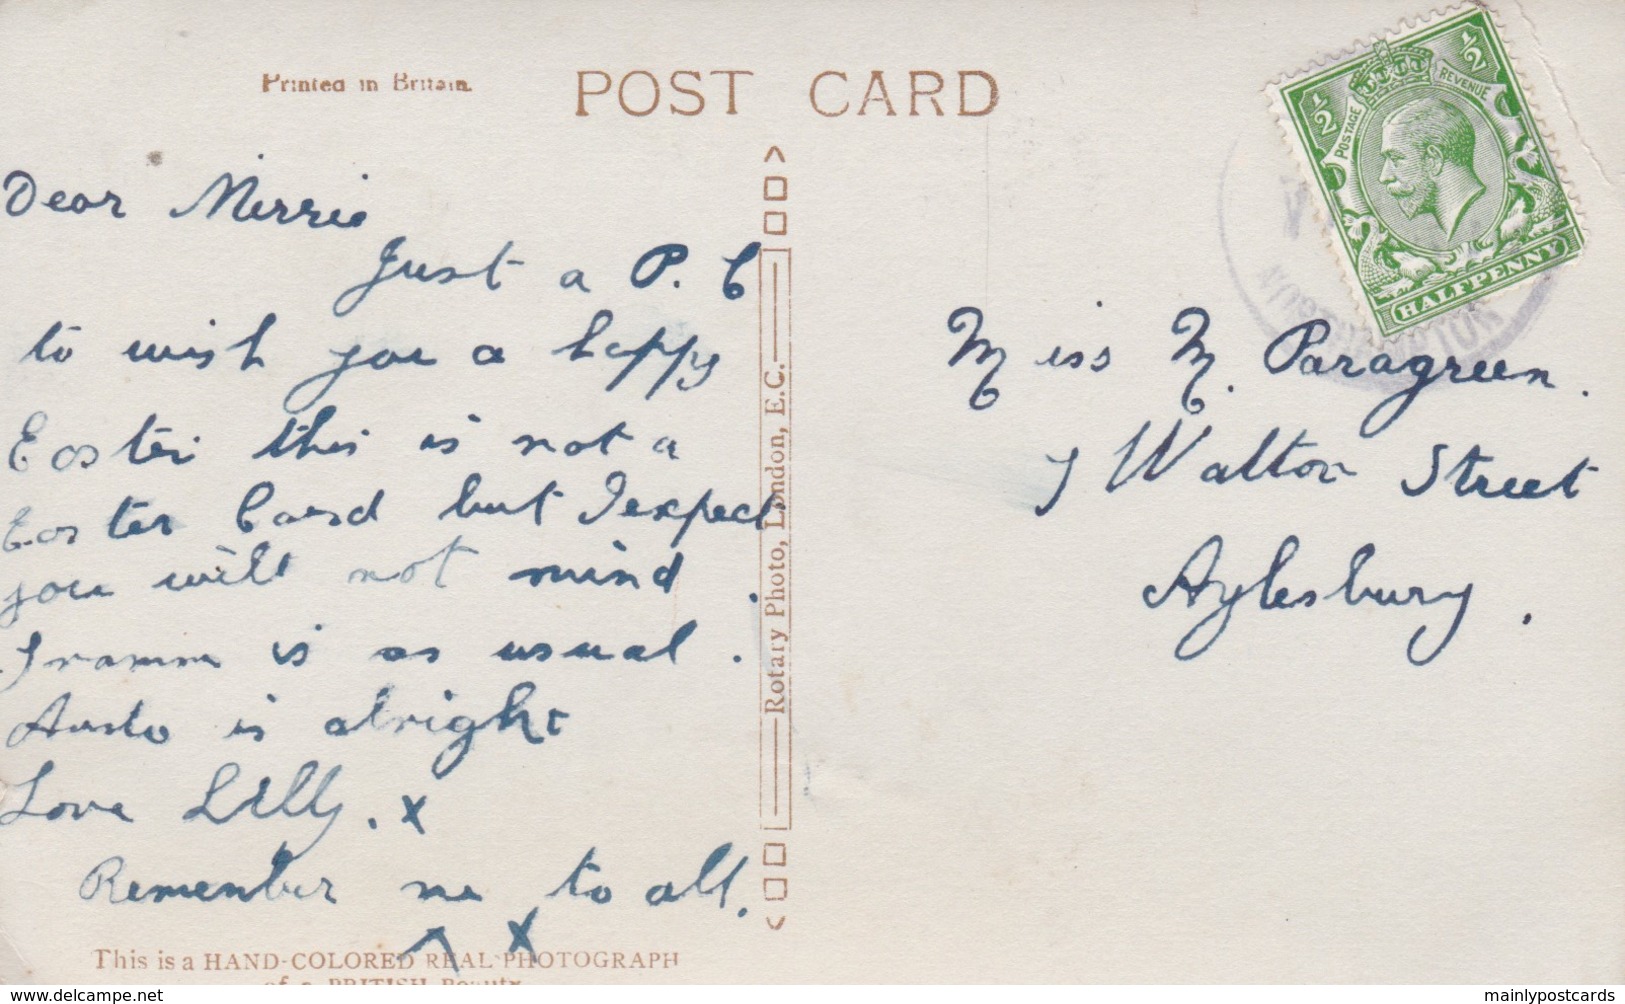 Printed in Britain.
POST CARD
Dear Merrie
Just a P. C
to wish you a happy
Easter this is not a
Easter Card but I expect
you will not mind .
is as usual .
is alright
Love Lilly. x
Remember me to all.
x
This is a HAND-COLORED REAL PHOTOGRAPH
of a BRITISH Beauty
Rotary Photo, London, E.C.
½
½
POSTAGE
REVENUE
HALFPENNY
NORTHAMPTON
Miss M. Paragreen.
7 Walton Street
Aylesbury.
delcampe.net
mainlypostcards